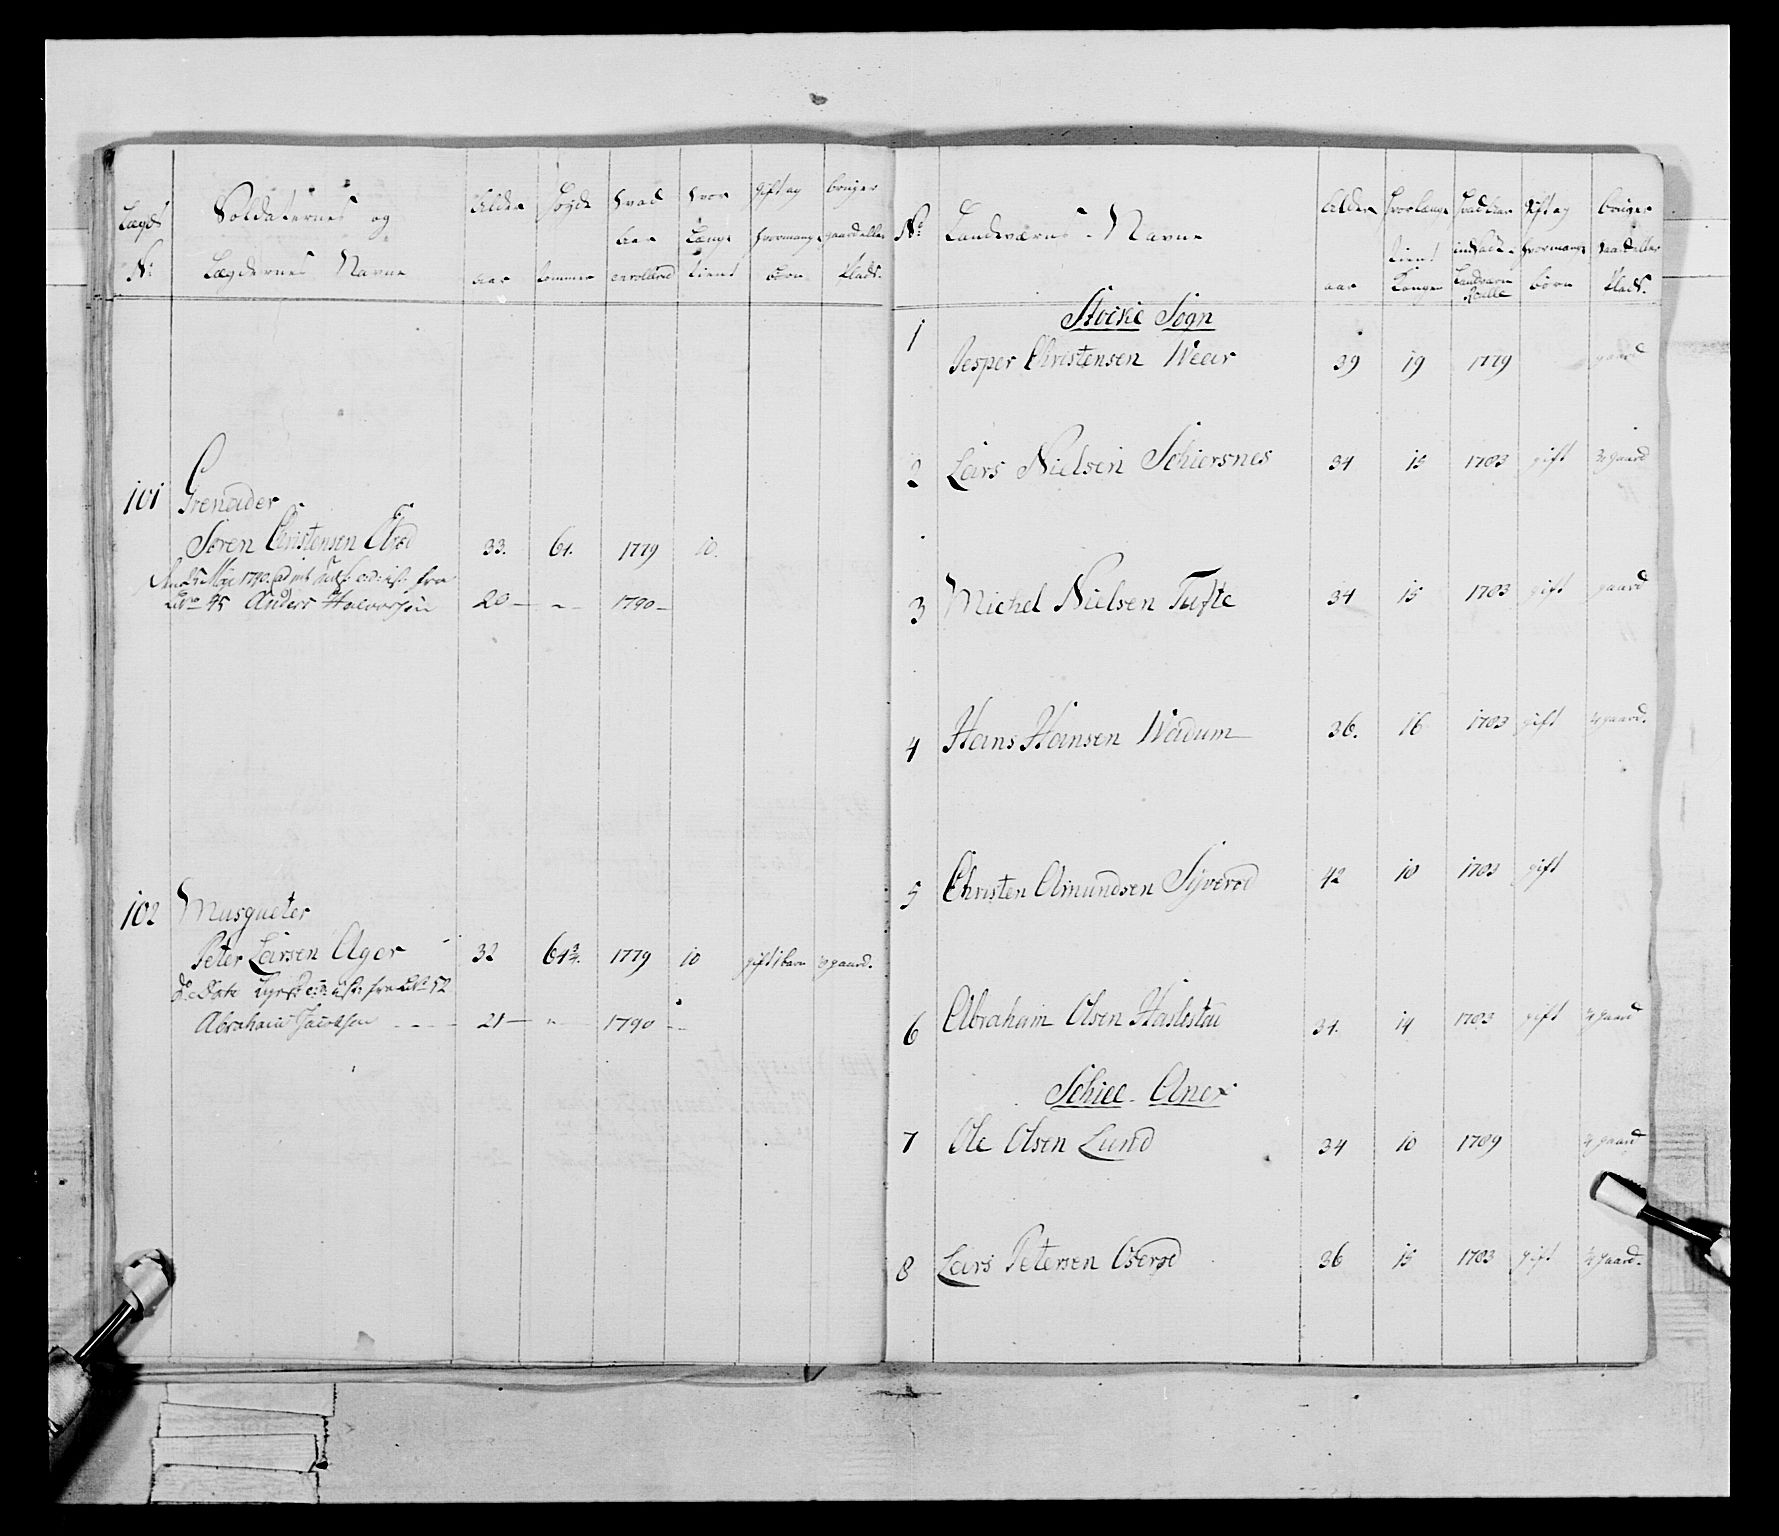 Lægd
No
Soldaternes og
Lægdernes Navne
Alder
aar
Høyde
tommer
hvad
aar
enrolered
hvor
længe
tient
gift og
hvormange
børn
bruger
gaard eller
Plads.
101 Grenader
Søren Christensen Elrød 33. 61. 1779 10.
fra
No 45 Anders Halvorsen 20 — „ — 1790 —
102 Musqueter
Peter Larsen Ager 32 61 3/4. 1779 10 gift 1 barn gaard.
fra No 52
Abraham Jacobsen - - - 21 — „ — 1790 - -
No
Landværns - Navne
Alder
aar
hvorlænge
tient
Kongen
hvad aar
indsadt
Landværn
Rulle
Gift og
hvormange
børn
bruger
gaard eller
Plads.
Stocke Sogn
1 Jesper Christensen Weær 39 19 1779 gaard
2 Lars Nielsen Schiersnes 34 15 1783 gift 1/2 gaard
3 Michel Nielsen Tufte 34 15 1783 gift gaard
4 Hans Hansen Wadum 36. 16 1783 gift 1/2 gaard.
5 Christen Amundsen Syverød 42 10 1783 gift
6 Abraham Olsen Haslestad 34. 14 1783 gift 1/2 gaard
Schiee Anex
7 Ole Olsen Lund 34 10 1789 1/2 gaard
8 Lars Petersen Oserød 36 15 1783 gift 1/2 gaard.